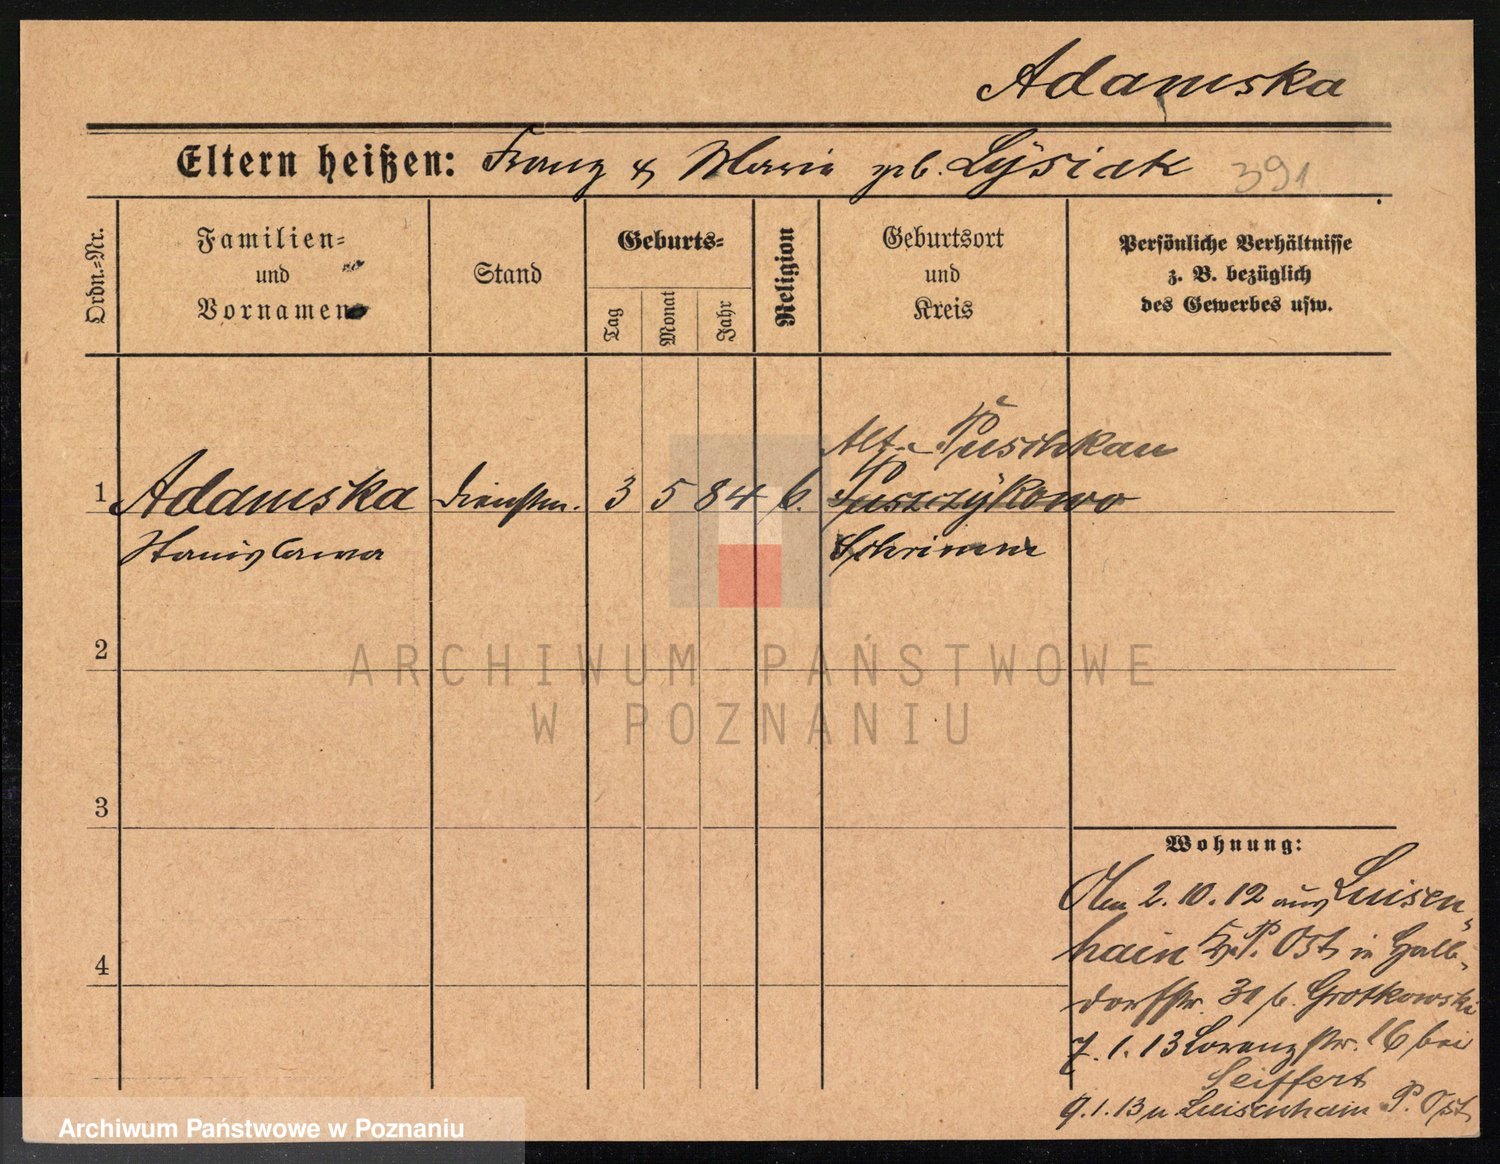 Adamska
Eltern heißen: Franz & Marie geb. Lÿsiak 391
Ordn.-Nr.
Familien-
und
Vornamen
Stand
Geburts-
Tag
Monat
Jahr
Religion
Geburtsort
und
Kreis
Persönliche Verhältnisse
z. B. bezüglich
des Gewerbes usw.
Alt-Puschkau
1 Adamska Dienstm. 3 5 84 k. Puszczÿkowo
Stanislawa Schrimm
2
ARCHIWUM PAŃSTWOWE
W POZNANIU
3
Wohnung:
Am 2.10.12 aus Luisen-
hain P. Ost in Halb-
dorfstr. 30 b. Grotkowski
7.1.13 Lorenzstr. 16 bei
Seiffert
9.1.13 n Luisenhain P. Ost
4
Archiwum Państwowe w Poznaniu